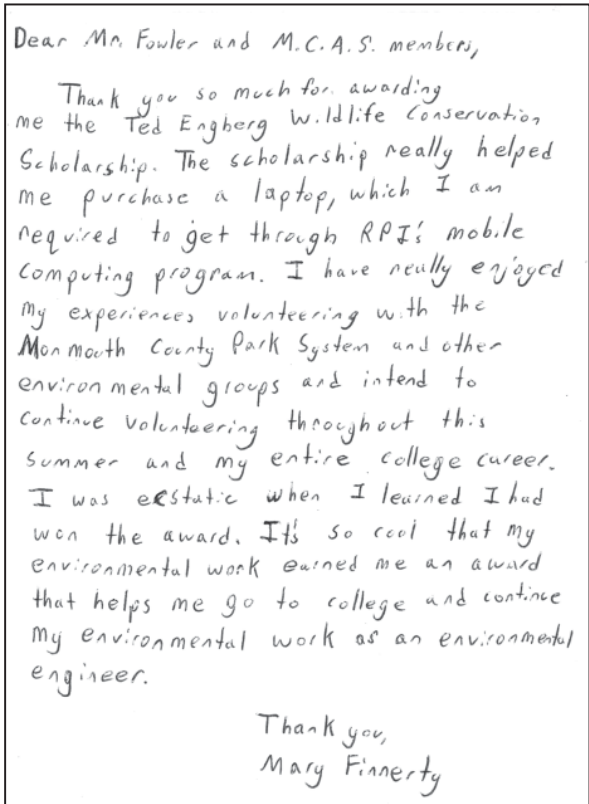 Dear Mr. Fowler and M.C.A.S. members,
Thank you so much for awarding
me the Ted Engberg Wildlife Conservation
Scholarship. The scholarship really helped
me purchase a laptop, which I am
required to get through RPI's mobile
computing program. I have really enjoyed
my experiences volunteering with the
Monmouth County Park System and other
environmental groups and intend to
continue volunteering throughout this
summer and my entire college career.
I was ecstatic when I learned I had
won the award. It's so cool that my
environmental work earned me an award
that helps me go to college and continue
my environmental work as an environmental
engineer.
Thank you,
Mary Finnerty